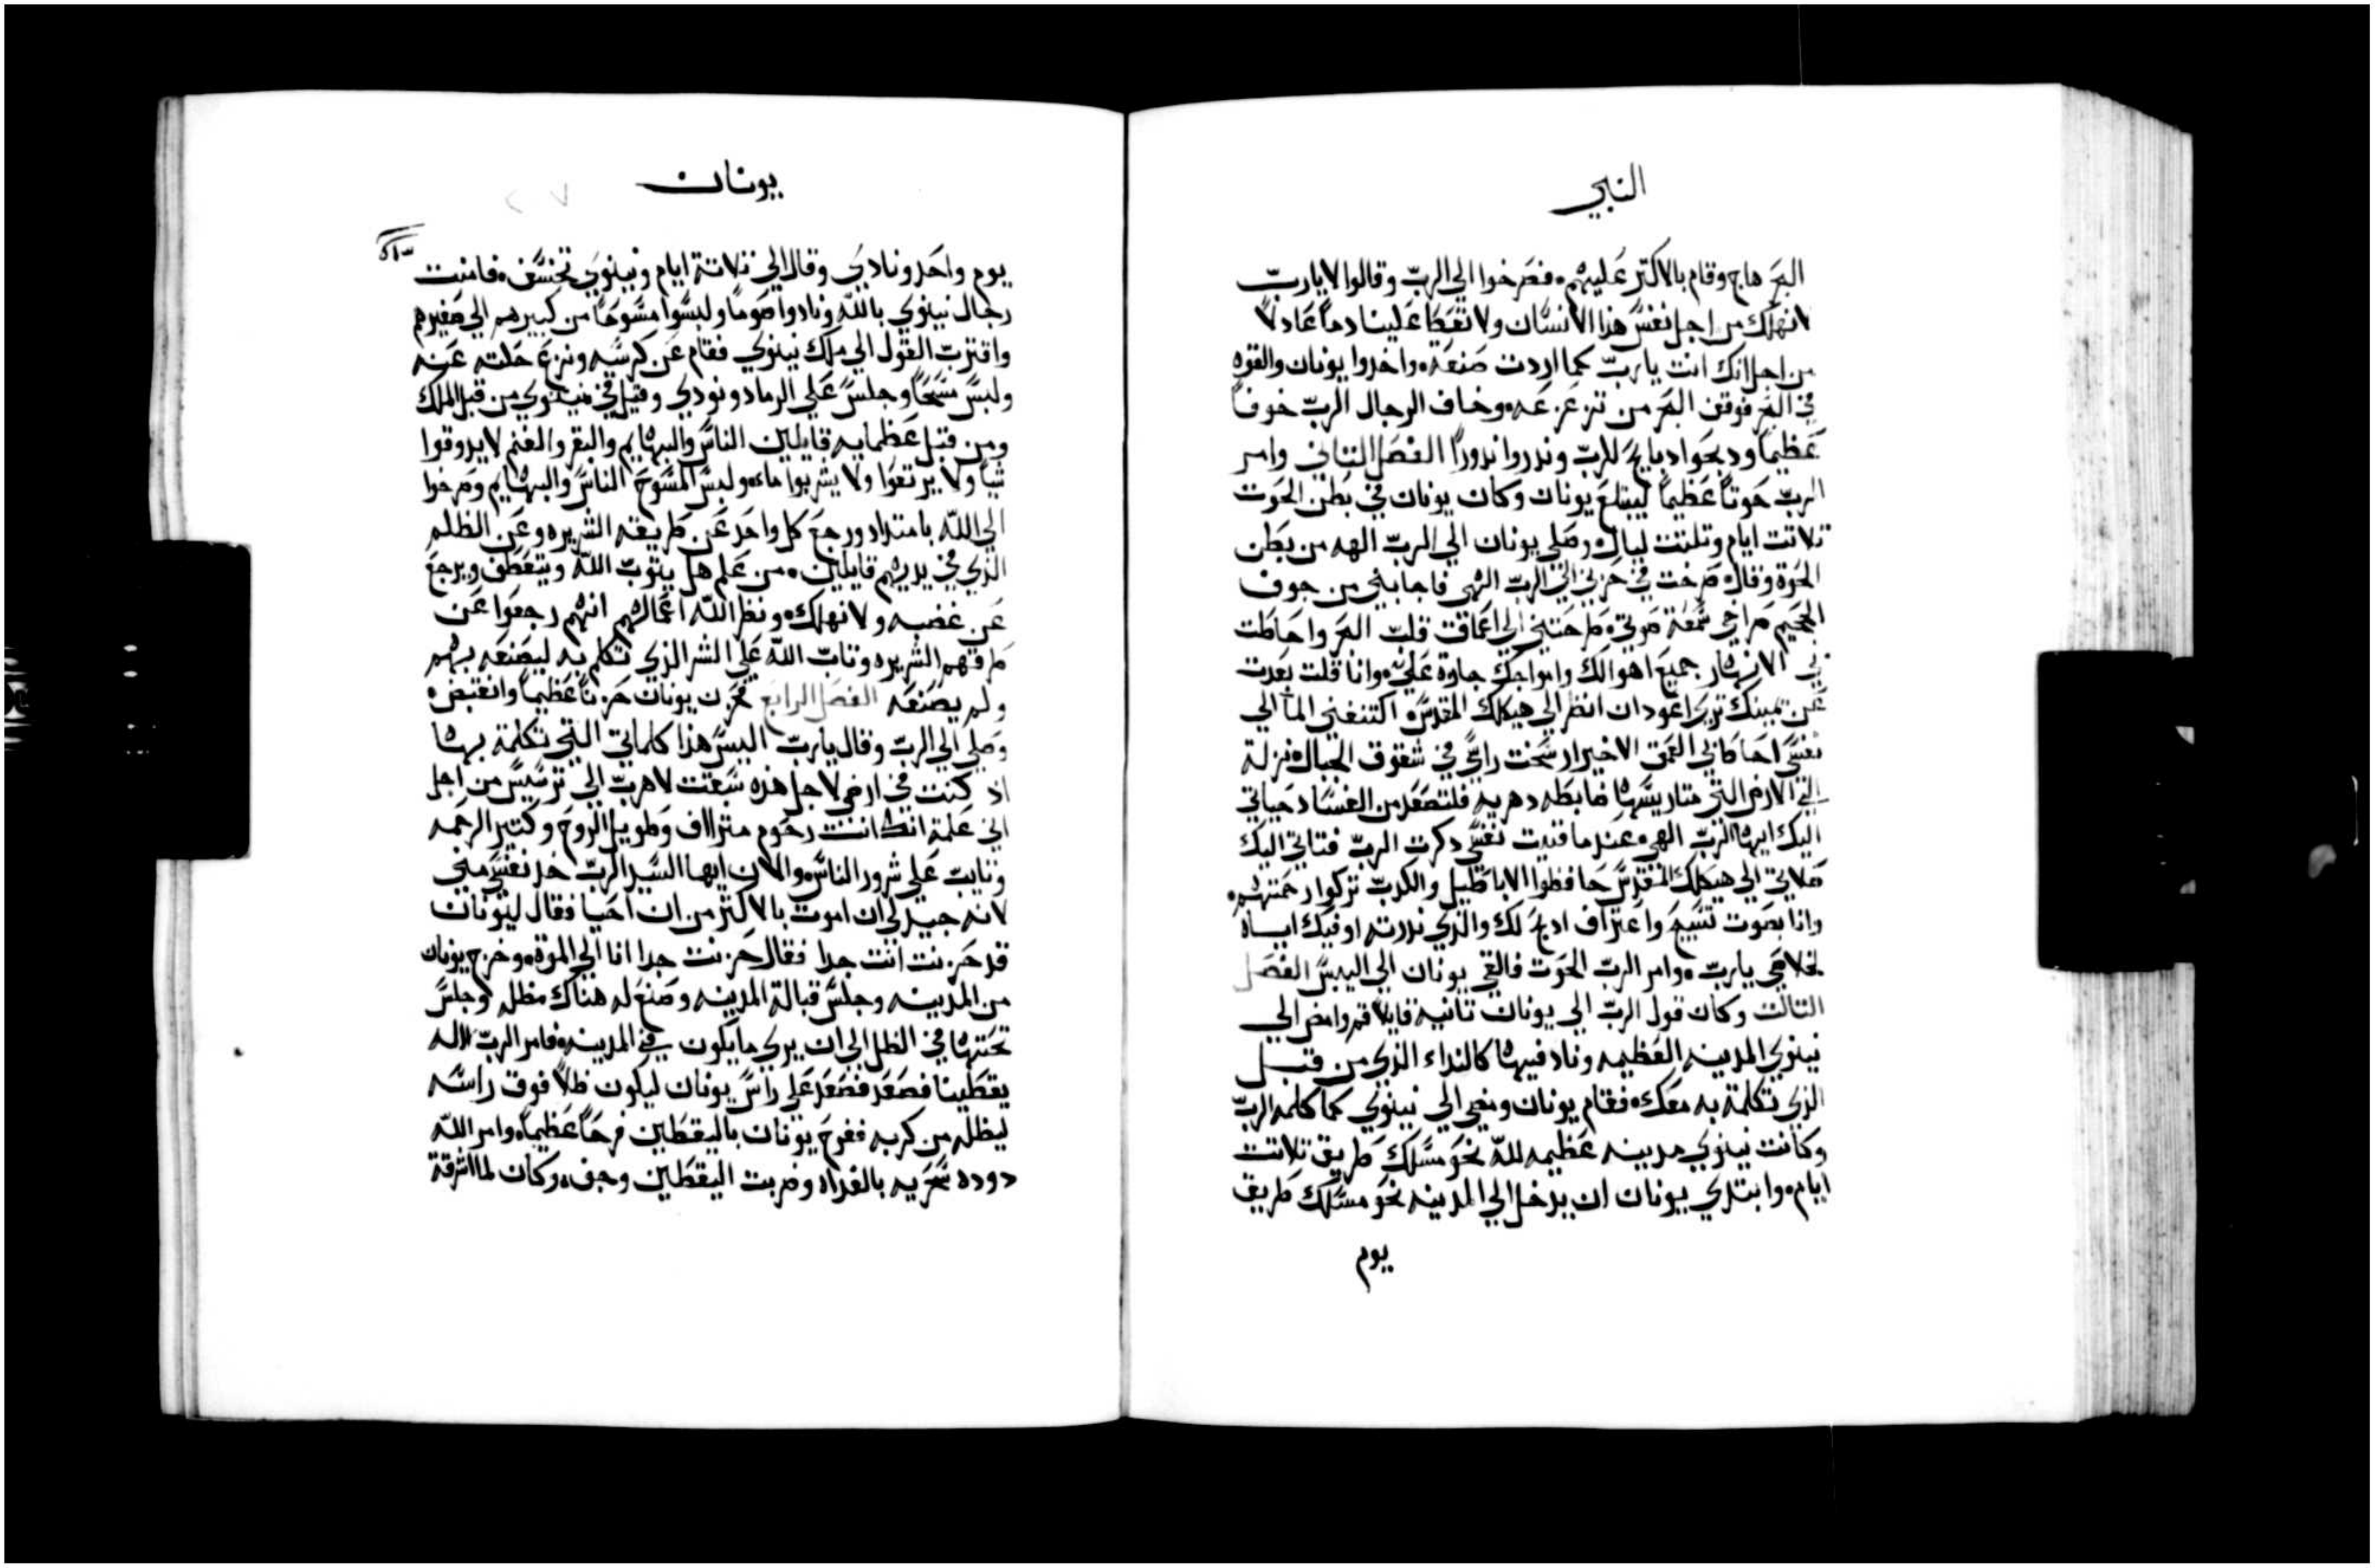 النبي
البحر هاج وقام بالاكتر عليهم فصرخوا الي الرب وقالوا لا يارب
لا نهلك من اجل نفس هذا الانسان ولا تعطا علينا دماً عادلاً
من اجل انك انت يا رب كما اردت صنعت واخدوا يونان والقوه
في البحر فوقف البحر من تزعزعه وخاف الرجال الرب خوفاً
عظيماً ودبحوا دبايح للرب وندروا ندوراً الفصل التاني وامر
الرب حوتاً عظيماً ليبتلع يونان وكان يونان في بطن الحوت
تلاتت ايام وتلتت ليال وصلي يونان الي الرب الهه من بطن
الحوة وقال صرخت في حزني الي الرب الهي فاجابني من جوف
الجحيم صراخي سمعة صوتي طرحتني الي اعماق قلب البحر واحاطت
بي الانهار جميع اهوالك وامواجك جاوة علي وانا قلت بعدت
عن عينيك تري اعود ان انظر الي هيكلك المقدس اكتنفني الما الي
نفسي احاط بي العمق الاخير ارسخت راسي في شقوق الجبال نزلة
الي الارض التي متاريسها ضابطه دهريه فلتصعد من الفساد حياتي
اليك ايها الرب الهي عندما فنيت نفسي دكرت الرب فتاتي اليك
صلاتي الي هيكلك المقدس حافظوا الاباطيل والكدب تركوا رحمتهم
وانا بصوت تسبيح واعتراف ادبح لك والذي ندرته اوفيك اياه
لخلاصي يارب وامر الرب الحوت فالقي يونان الي اليبس الفصل
التالت وكان قول الرب الي يونان تانيه قايلاً قم وامض الي
نينوي المدينه العظيمه وناد فيها كالنداء الذي من قبل
الذي تكلمة به معك فقام يونان ومضي الي نينوي كما كلمه الرب
وكانت نينوي مدينه عظيمه لله نحو مسلك طريق تلاتت
ايام وابتدي يونان ان يدخل الي المدينه نحو مسلك طريق
يوم
يونان
يوم واحد ونادي وقال الي تلاتة ايام ونينوي تخسف فامنت
رجال نينوي بالله ونادوا صوماً ولبسوا مسوحاً من كبيرهم الي صغيرهم
واقتربت القول الي ملك نينوي فقام عن كرسيه ونزع حلته عنه
ولبس مسحاً وجلس علي الرماد ونودي وقيل في نينوي من قبل الملك
ومن قبل عظمايه قايلين الناس والبهايم والبقر والغنم لا يدوقوا
شياً ولا يرتعوا ولا يشربوا ماء ولبس المسوح الناس والبهايم وصرخوا
الي الله بامتداد ورجع كل واحد عن طريقته الشريره وعن الظلم
الذي في يديهم قايلين من علم هل يتوب الله ويتعطف ويرجع
عن غضبه ولا نهلك ونظر الله اعمالهم انهم رجعوا عن
طرقهم الشريره وتاب الله علي الشر الذي تكلم به ليصنعه بهم
ولم يصنعه الفصل الرابع فحزن يونان حزناً عظيماً وانقبض
وصلي الي الرب وقال يارب اليس هذا كلماتي التي تكلمة بها
اذ كنت في ارضي لاجل هذه سبقت لاهرب الي ترسيس من اجل
اني علمة انك انت رحوم متراف وطويل الروح وكتير الرحمه
وتايب علي شرور الناس والان ايها السيد الرب خد نفسي مني
لانه جيد لي ان اموت بالاكتر من ان احيا فقال ليونان
قد حزنت انت جدا فقال حزنت جدا انا الي الموة وخرج يونان
من المدينه وجلس قبالة المدينه وصنع له هناك مظله وجلس
تحتها في الظل الي ان يري ما يكون في المدينه فامر الرب الاله
يقطينا فصعد فصعد علي راس يونان ليكون ظلاً فوق راسه
ليظله من كربه ففرح يونان باليقطين فرحاً عظيماً وامر الله
دوده سحريه بالغداه وضربت اليقطين وجف وكان لما اشرقة